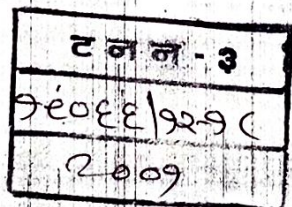 ट न न - ३
१८०६६/१२-१८
२००१